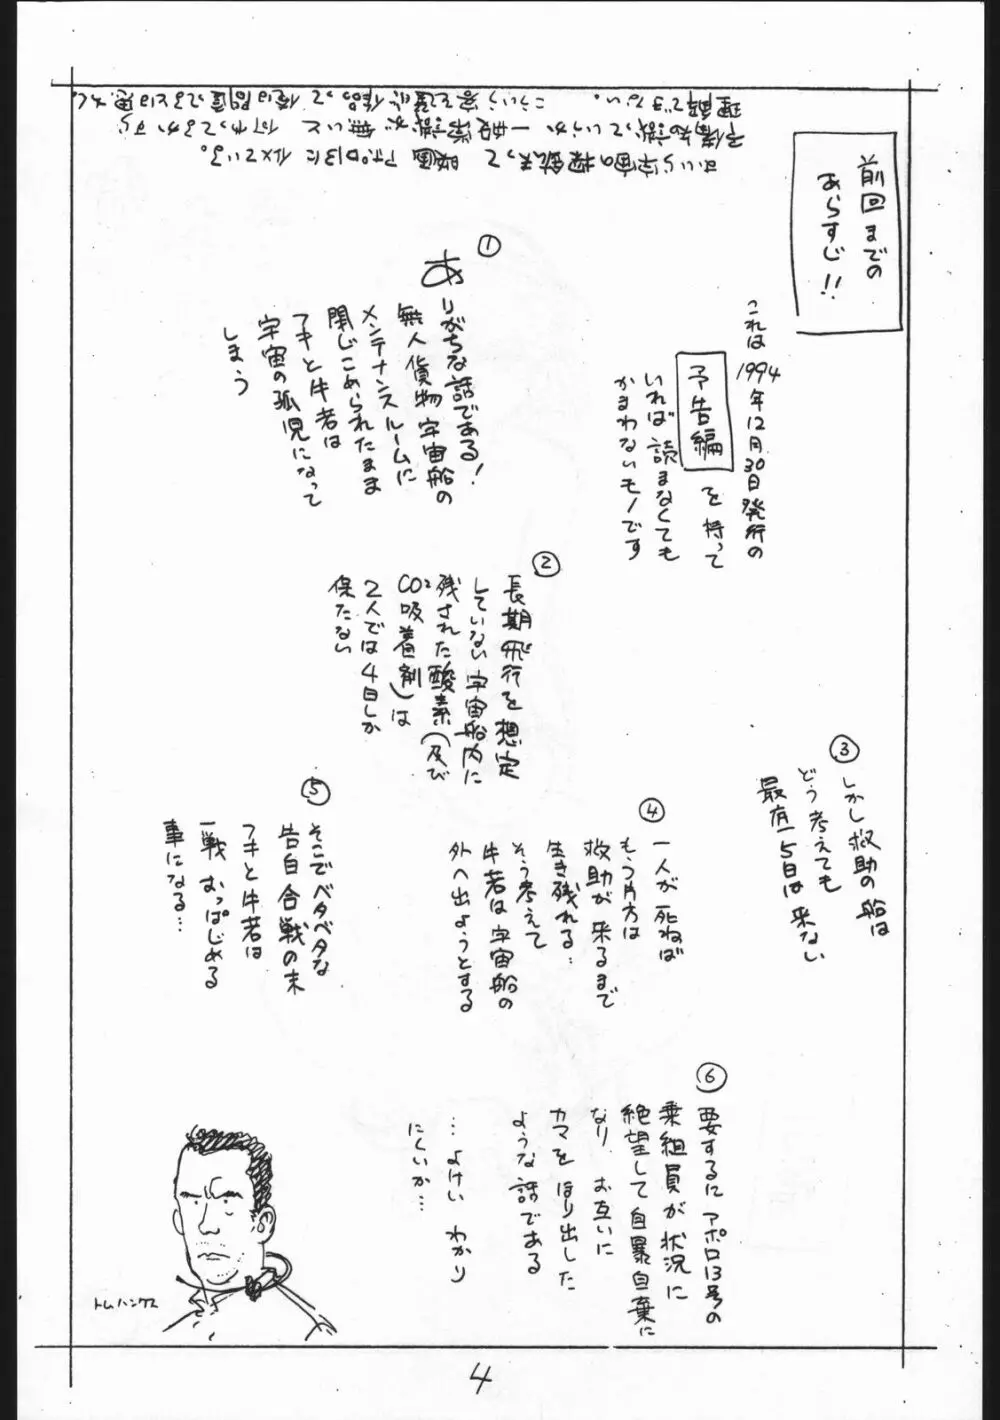 前回までの
あらすじ!!
これは1994年12月30日発行の
予告編を持って
いれば読まなくても
かまわないモノです
①
ありがちな話である!
無人貨物宇宙船の
メンテナンスルームに
閉じこめられたまま
フキと牛若は
宇宙の孤児になって
しまう
②
長期飛行を想定
していない宇宙船内に
残された酸素(及び
CO²吸着剤)は
2人では4日しか
保たない
③
しかし救助の船は
どう考えても
最有15日は来ない
④
一人が死ねば
もう片方は
救助が来るまで
生き残れる…
そう考えて
牛若は宇宙船の
外へ出ようとする
⑤
そこでベタベタな
告白合戦の末
フキと牛若は
一戦おっぱじめる
事になる…
⑥
要するにアポロ13号の
乗組員が状況に
絶望して自暴自棄に
なり お互いに
カマをほり出した
ような話である
…よけいわかり
にくいか…
トムハンクス
映画アポロ13に似ている。
予備知識っていうか一般常識が無いと
理解できない。こういう
4